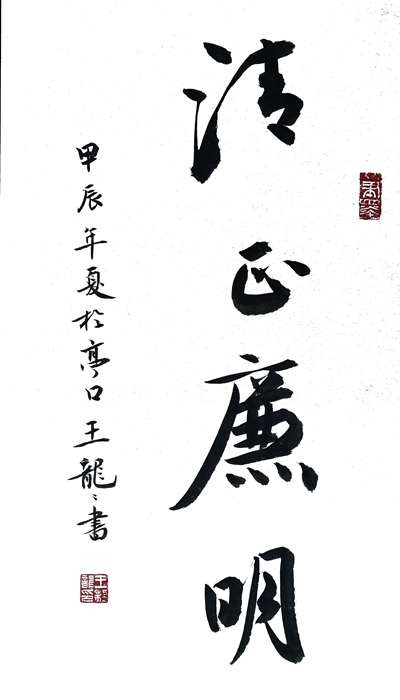 清正廉明
甲辰年夏於亭口王龍龍書